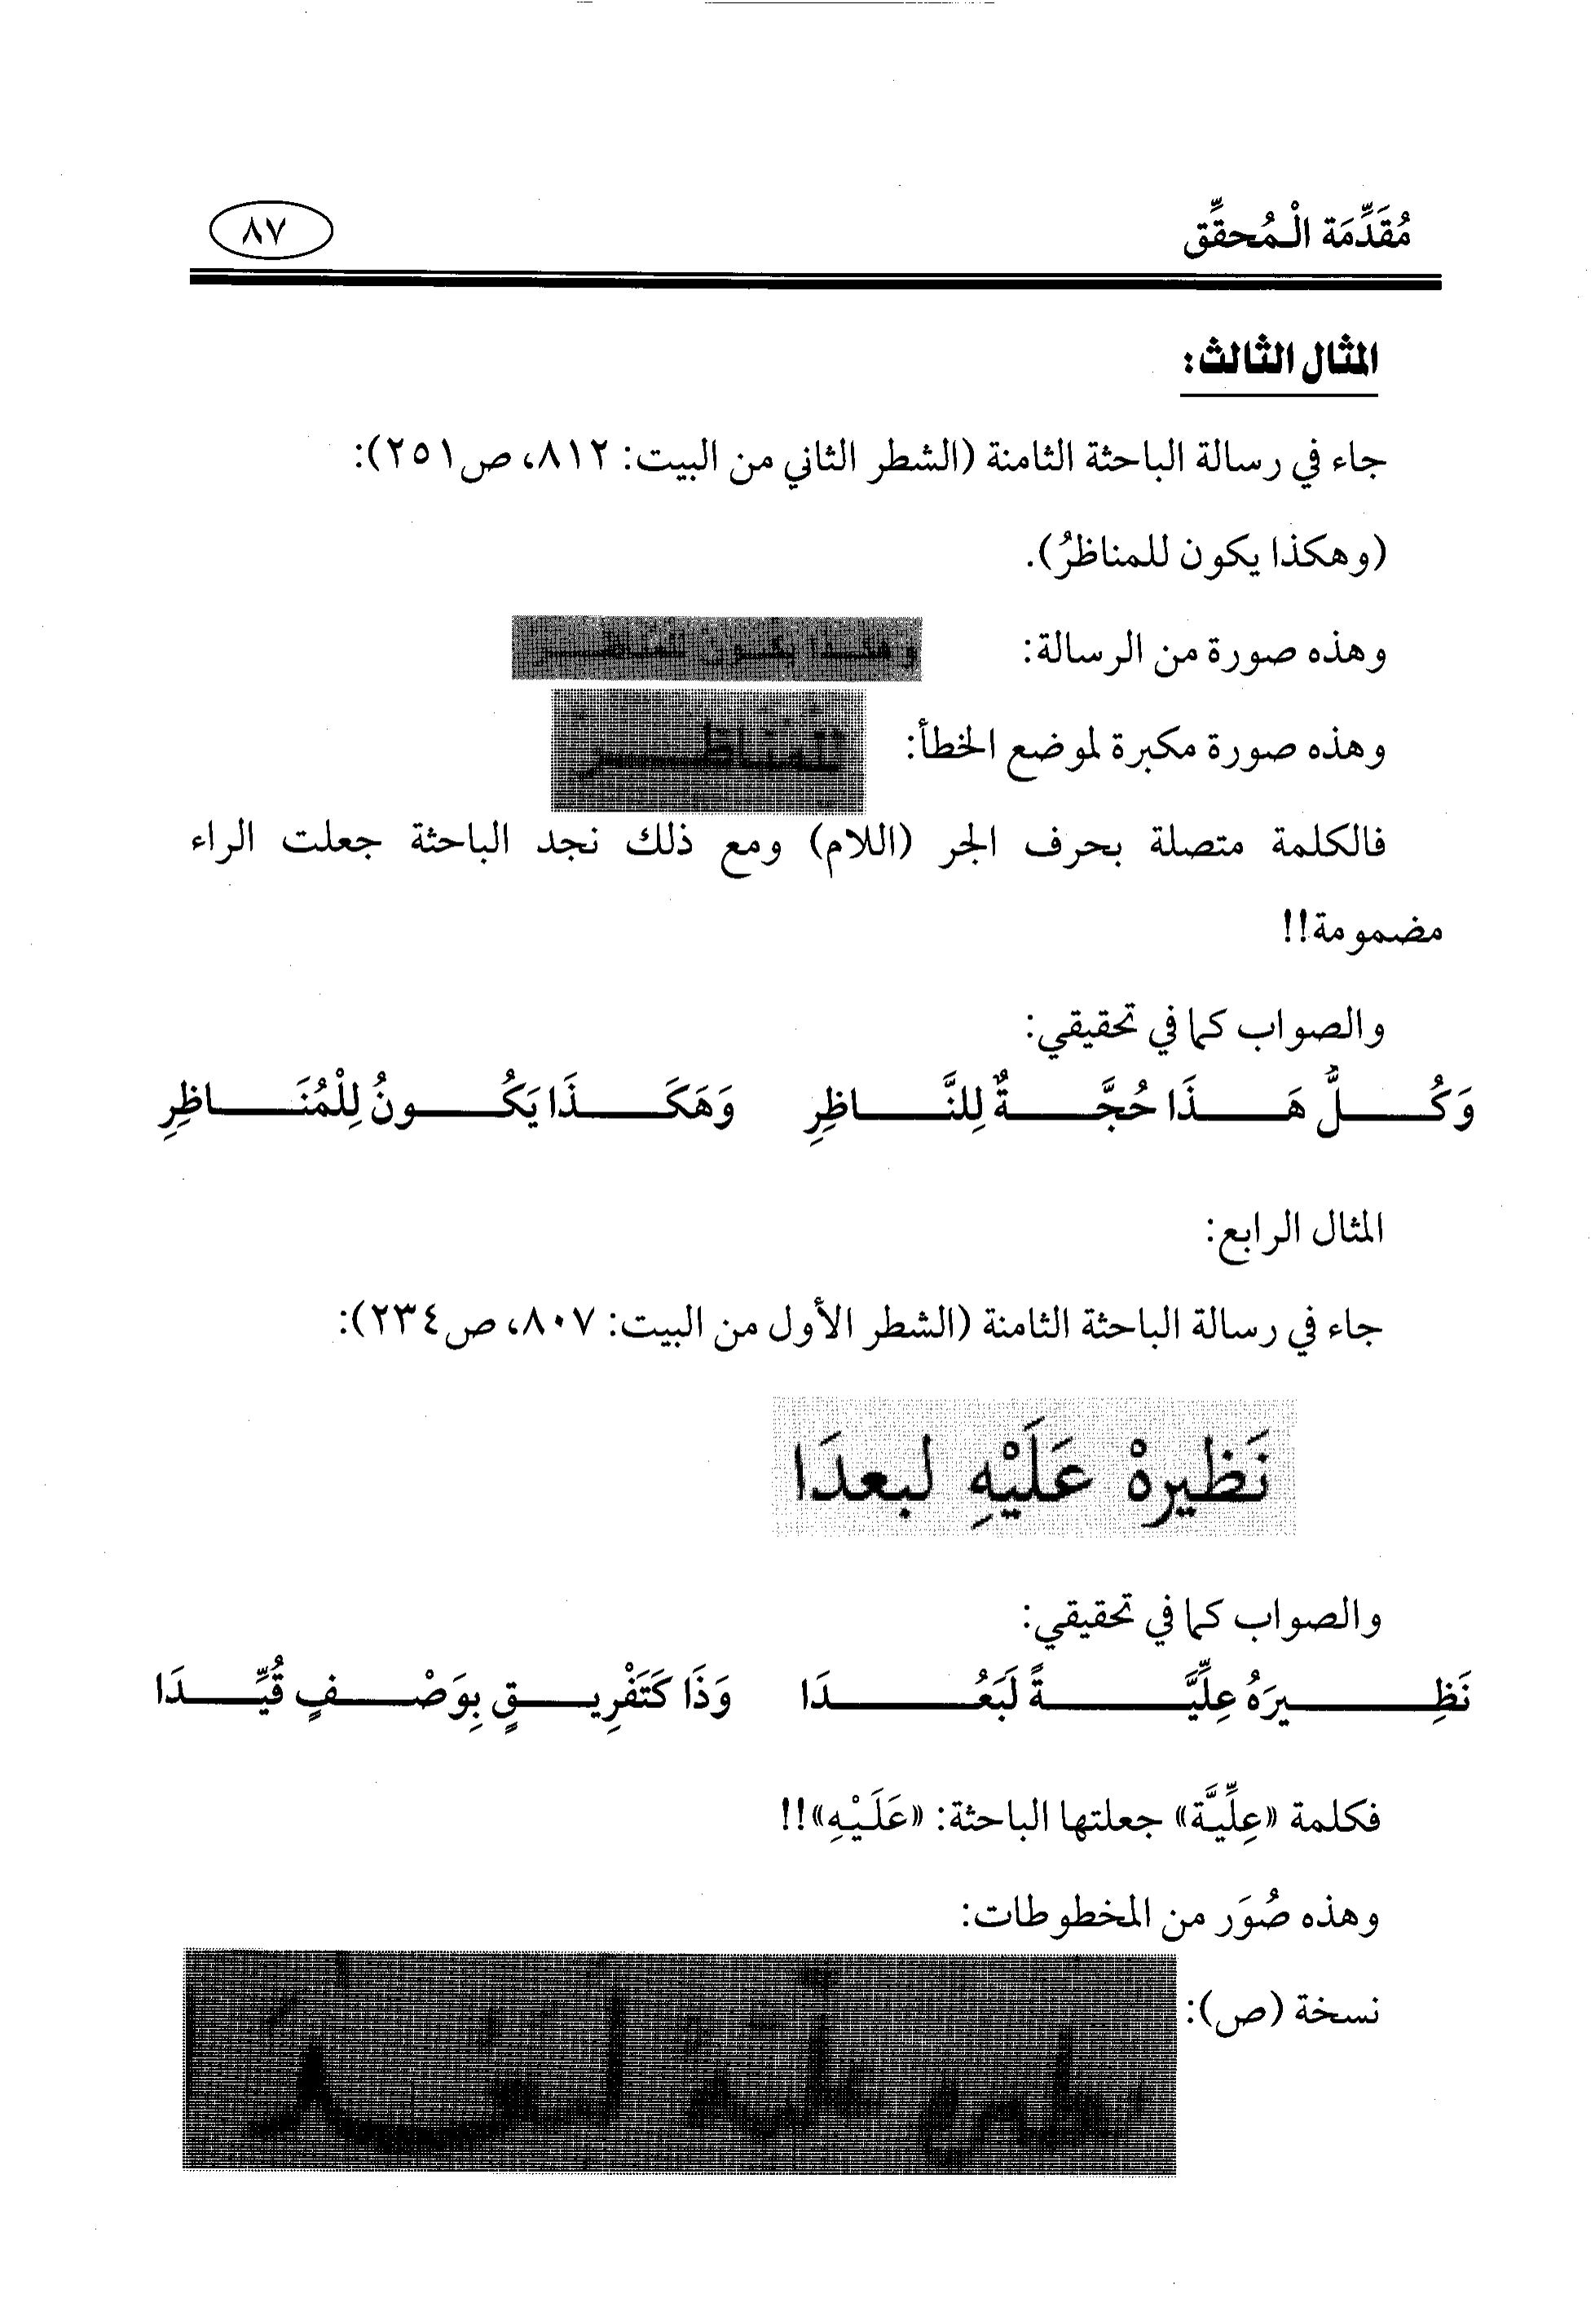 مُقَدِّمَة الْـمُحقِّق ٨٧
المثال الثالث:
جاء في رسالة الباحثة الثامنة (الشطر الثاني من البيت: ٨١٢، ص٢٥١):
(وهكذا يكون للمناظرُ).
وهذه صورة من الرسالة: وهكـذا يكـون للمناظـر
وهذه صورة مكبرة لموضع الخطأ: للمُنَاظِـــرُ
فالكلمة متصلة بحرف الجر (اللام) ومع ذلك نجد الباحثة جعلت الراء
مضمومة!!
والصواب كما في تحقيقي:
وَكُـــلُّ هَـــذَا حُجَّـــةٌ لِلنَّـــاظِرِ وَهَكَـــذَا يَكُـــونُ لِلْمُنَـــاظِرِ
المثال الرابع:
جاء في رسالة الباحثة الثامنة (الشطر الأول من البيت: ٨٠٧، ص٢٣٤):
نَظيرهْ عَلَيْهِ لبعدَا
والصواب كما في تحقيقي:
نَظِـــيرَهُ عِلِّيَّـــةً لَبَعُـــدَا وَذَا كَتَفْرِيـــقٍ بِوَصْـــفٍ قُيِّـــدَا
فكلمة «عِلِّيَّة» جعلتها الباحثة: «عَلَـيْـهِ»!!
وهذه صُوَر من المخطوطات:
نسخة (ص):